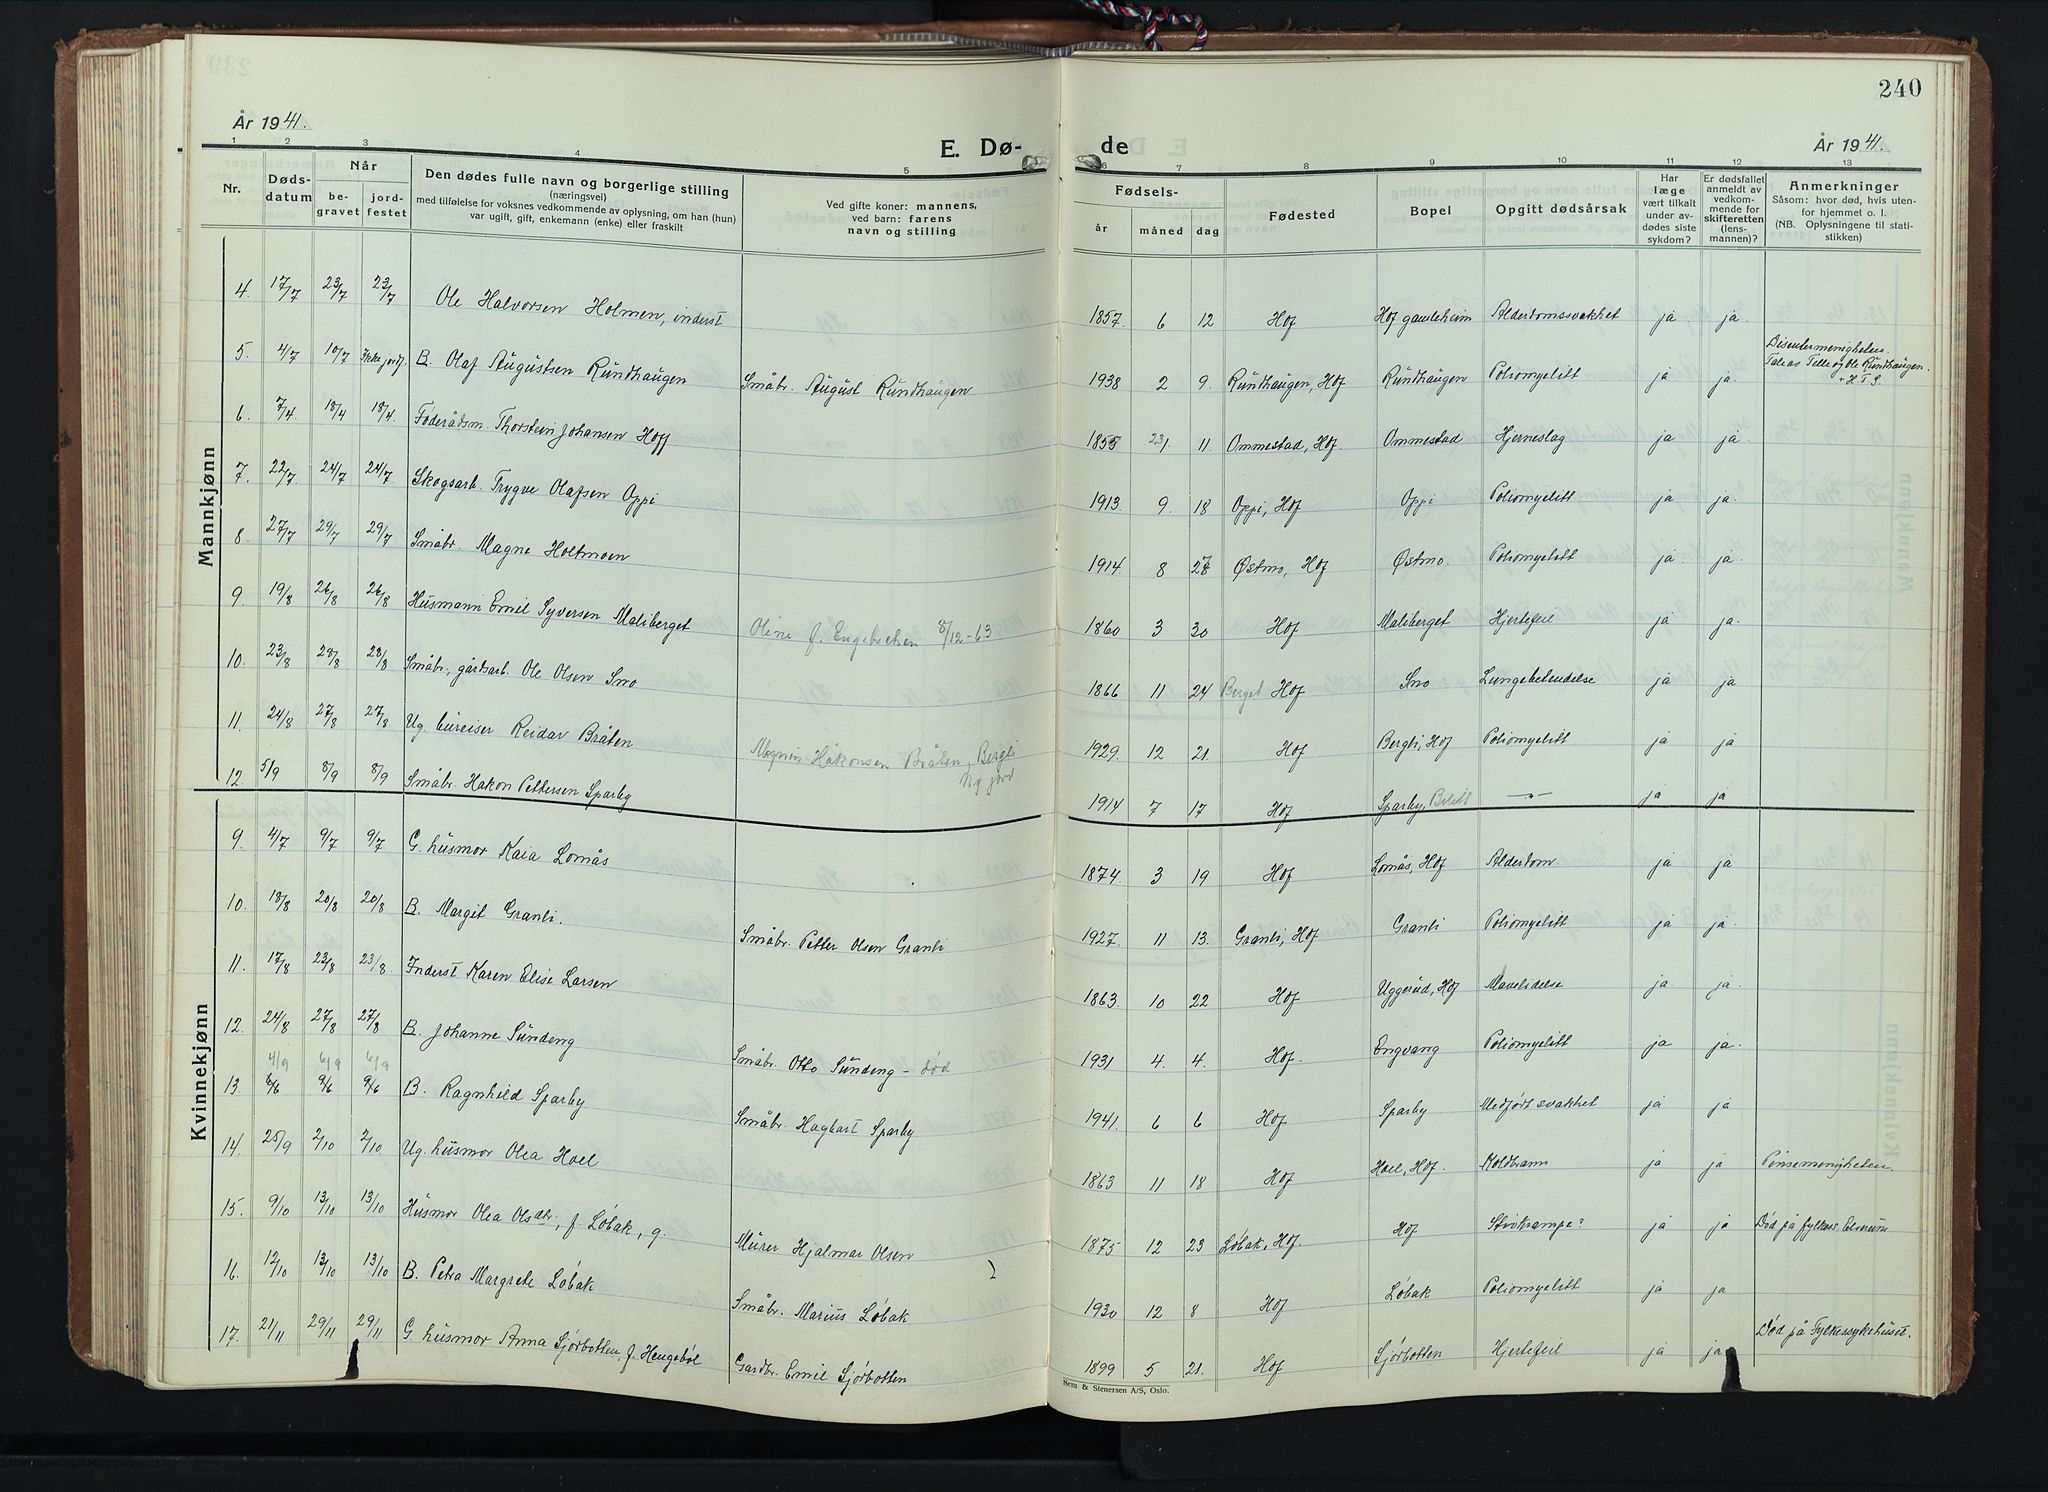 240
År 1941.
E. Dø-
de
År 1941.
1 2 3 4 5 6 7 8 9 10 11 12 13
Nr.
Døds-
datum
Når
be-
gravet
jord-
festet
Den dødes fulle navn og borgerlige stilling
(næringsvei)
med tilføielse for voksnes vedkommende av oplysning, om han (hun)
var ugift, gift, enkemann (enke) eller fraskilt
Ved gifte koner: mannens,
ved barn: farens
navn og stilling
Fødsels-
år måned dag
Fødested
Bopel
Opgitt dødsårsak
Har
læge
vært tilkalt
under av-
dødes siste
sykdom?
Er dødsfallet
anmeldt av
vedkom-
mende for
skifteretten
(lens-
mannen)?
Anmerkninger
Såsom: hvor død, hvis uten-
for hjemmet o. l.
(NB. Oplysningene til stati-
stikken)
Mannkjønn
4 17/7 23/7 23/7 Ole Halvorsen Holmen, inderst 1857. 6 12 Hof Hof gamleheim Alderdomssvakhet ja ja.
5. 4/7 10/7 Ikke jordf. B. Olaf Augustsen Rundhaugen Småbr. August Rundhaugen 1938 2 9. Rundhaugen, Hof Rundhaugen Poliomyelitt ja ja. Disentermenigheten.
Tale av Telle og Ole Rundhaugen.
+ H.T.S.
6. 7/4 18/4 18/4 Føderådsm. Thorstein Johansen Hoff 1855 11. Ommestad, Hof. Ommestad Hjerneslag ja ja.
7. 22/7. 24/7 24/7 Skogsarb. Trygve Olafsen Oppi 1913. 9. 18 Oppi, Hof Oppi Poliomyelitt ja ja.
8. 27/7 29/7 29/7 Småbr. Magne Holtmoen 1914. 8 Østmo, Hof Østmo. Poliomyelitt ja. ja.
9. 19/8 26/8 26/8 Husmann Emil Syversen Maliberget Oline f. Engebretsen 8/12-63 1860 3 30 Hof Maliberget Hjertefeil ja ja.
10. 23/8 28/8 28/8 Småbr., gårdsarb. Ole Olsen Sno 1866 11 24 Berget Hof Sno Lungebetendelse ja ja
11. 24/8 27/8 27/8 Ug. bureiser Reidar Bråten Magnus Håkonsen Bråten, Bergli
Ny jord 1929. 12 21. Hof Bergli, Hof Poliomyelitt ja ja
12. 5/9 8/9 8/9 Småbr. Hakon Pettersen Sparby 1914 7 17 Hof Sparby, —"— ja ja
Kvinnekjønn
9. 4/7 9/7 9/7 G. husmor Kaia Lomås 1874. 3 19 Hof Lomås, Hof Alderdom. ja ja
10. 18/8 20/8 20/8 B. Margit Granli. Småbr. Petter Olsen Granli 1927. 11 13. Granli, Hof Granli Poliomyelitt ja ja.
11. 17/8 23/8 23/8. Inderst Karen Elise Larsen 1863. 10 22 Hof Uggerud, Hof Mavelidelse ja. ja.
12. 24/8 27/8 27/8 B. Johanne Sundeng Småbr. Otto Sundeng - død 1931 4. 4. Hof. Engvang Poliomyelitt ja ja.
4/9 6/9 6/9
13. 6/6 9/6 9/6 B. Ragnhild Sparby Småbr. Hagbart Sparby 1941. 6 6 Hof Sparby Medfødt svakhet ja ja
14. 25/9 2/10 2/10 Ug. husmor Olea Hoel 1863 11 18 Hof Hoel, Hof. Koldbrann ja ja Pinsemenigheten
15. 9/10 13/10 13/10 Husmor Olea Olsdtr, f. Løbak, g. Murer Hjalmar Olsen 1875 12 23 Løbak, Hof. Hof Stivkrampe? ja ja Død på fylkess. Elverum
16. 12/10 13/10 13/10 B. Petra Margrete Løbak Småbr. Marius Løbak 1930 12 8 Hof Løbak Poliomyelitt ja ja
17. 21/11 29/11 29/11 G. husmor Anna Sjørbotten, f. Hengebøl Gardbr. Emil Sjørbotten 1899 5 21. Hof Sjørbotten Hjertefeil ja ja Død på Fylkessykehuset.
Sem & Stenersen A/S, Oslo.